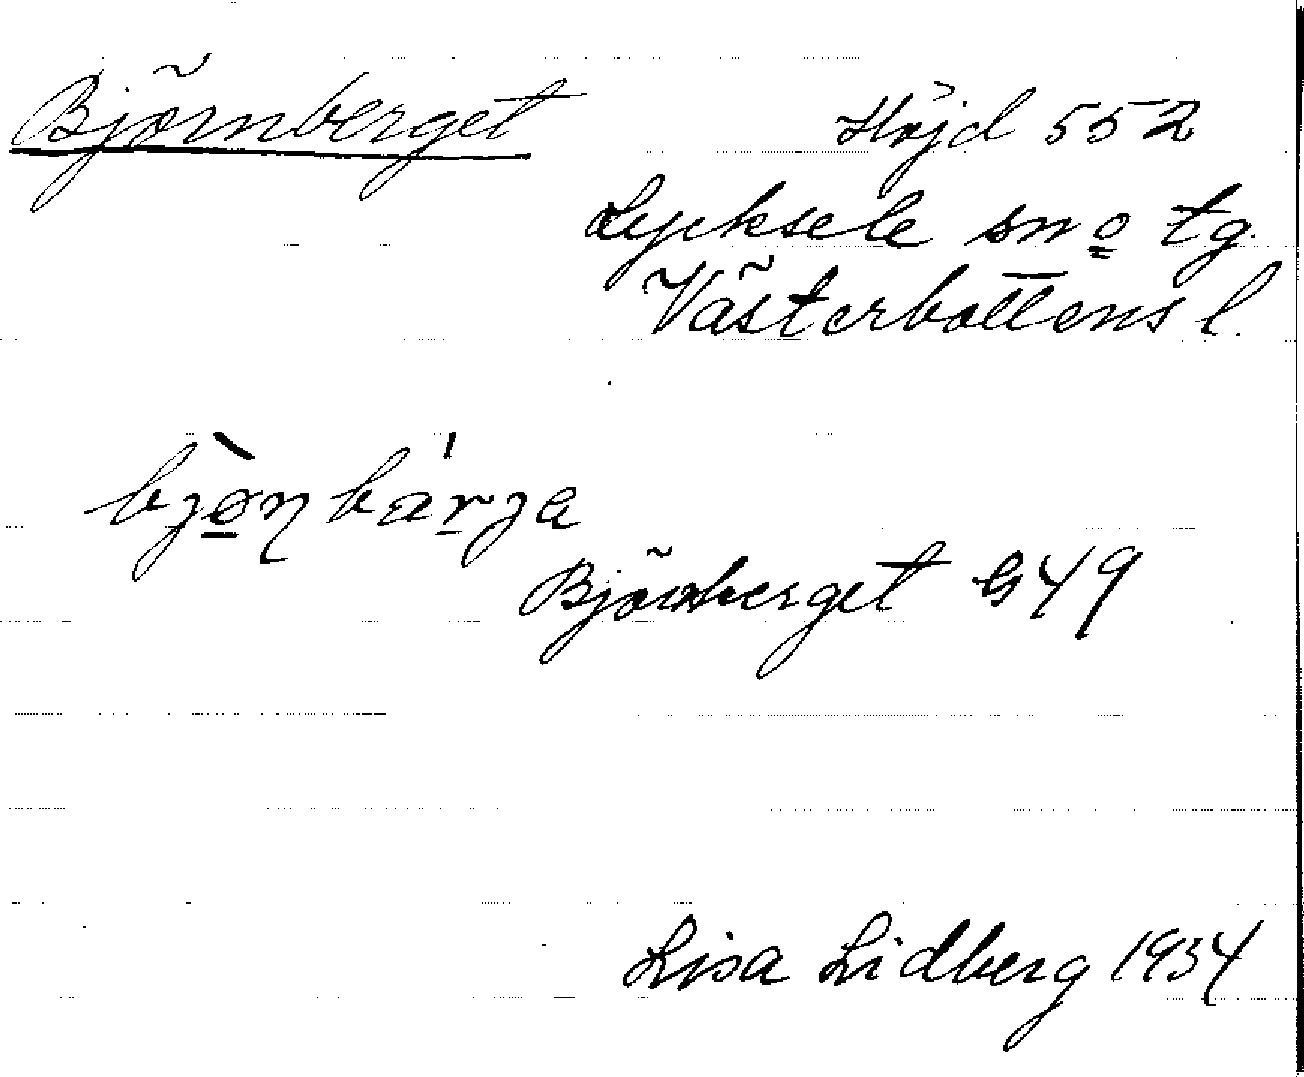 Björnberget
Höjd 552
Lycksele sn o tg.
Västerbottens l.
bjø̀ṇbárja
Björnberget G49
Lisa Lidberg 1934